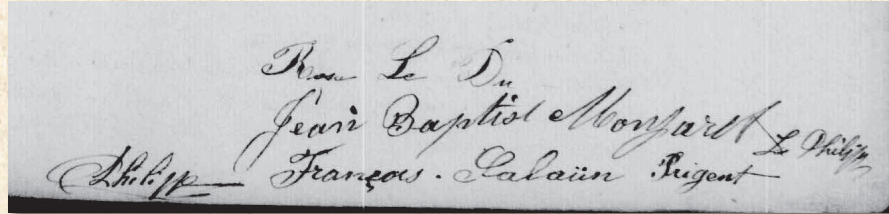 Rose Le Du
Jean Baptist Monfaret
Le Philippe
Philipp François. Galaün Prigent